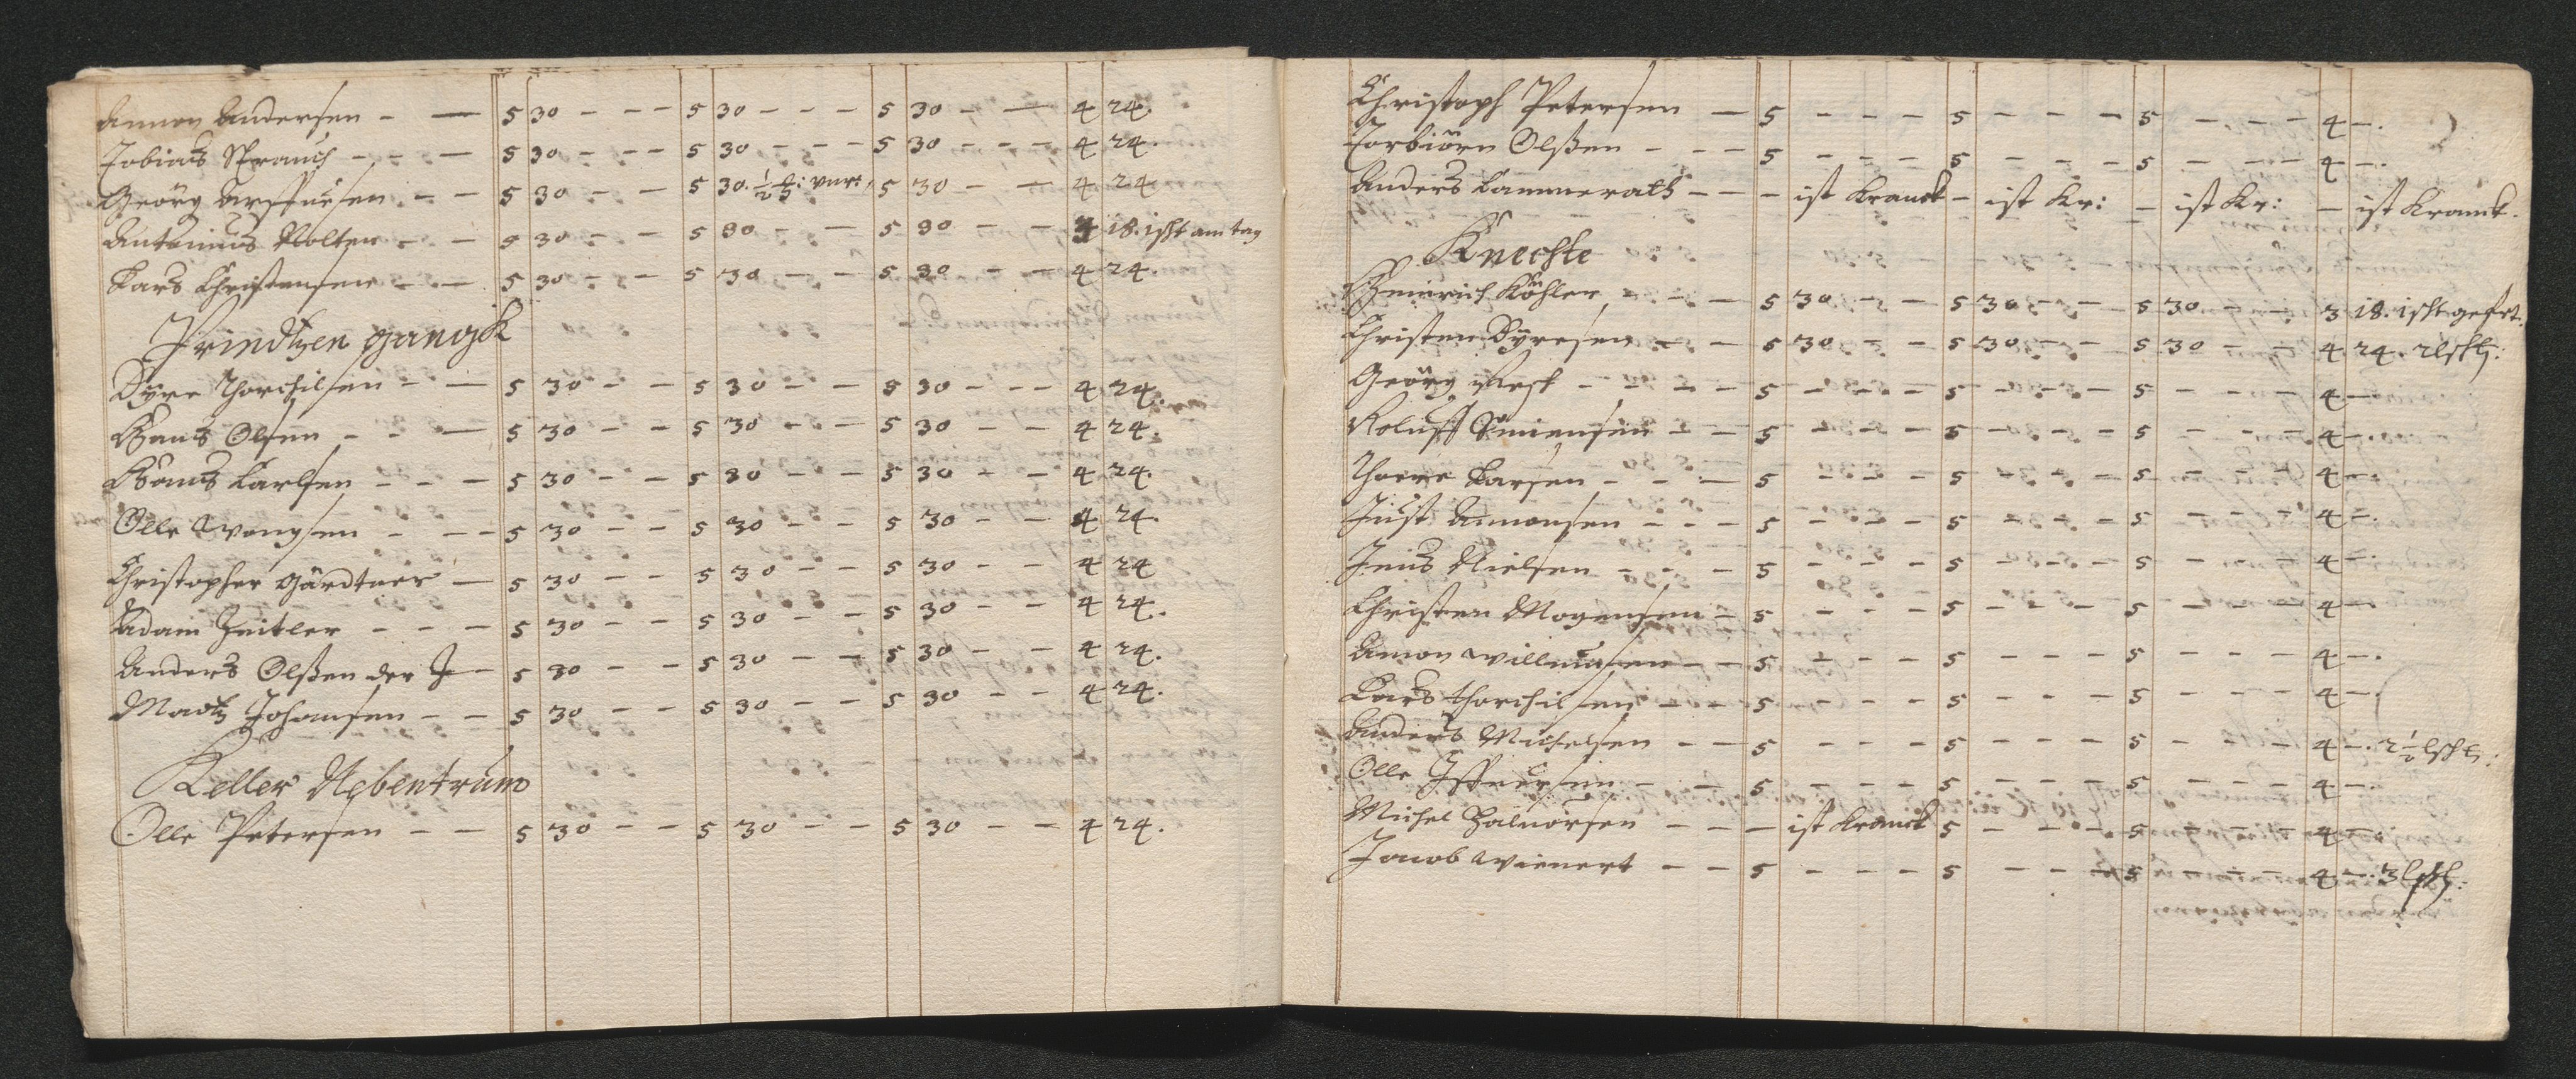 Amon Andersen - — 5 30 - - - 5 30 - - - 5 30 - — 4 24.
Tobias Strauch - - — 5 30 - - - 5 30 - - - 5 30 - - - 4 24.
Geörg - - 5 30 - - 5 30. ½ 5 30 - - 4 24
Antonius Nolten - - 5 30 - - 5 30 - - 5 30 - - 3 18. 1 scht am tag
Lars Christensen - - 5 30 - - 5 30 - - 5 30 - - 4 24.
Printzen gangk
Dyre Thorchilsen - — 5 30 - - 5 30 - - 5 30 - - - 4 24.
Hans Olsen - - — 5 30 - - 5 30 - - 5 30 - - 4 24.
Hans Carlsen - - - 5 30 - - 5 30 - - 5 30 - - 4 24.
Olle - - - 5 30 - - 5 30 - - 5 30 - - 4 24.
Christopher Gärdtner — 5 30 - - 5 30 - - 5 30 - - 4 24
Adam Zeitler - - - 5 30 - - 5 30 - - 5 30 - - 4 24.
Anders Olßen der J — 5 30 - - 5 30 - - 5 30 - - 4 24.
Madtz Johansen - - 5 30 - - 5 30 - - 5 30 - - 4 24.
Keller Nebentrum
Olle Petersen - - 5 30 - - 5 30 - - 5 30 - - 4 24.
Christoph Petersen — 5 - - - 5 - - - 5 - - - 4 -.
Torbiörn Olßen - - - 5 - - - 5 - - - 5 - - - 4 -.
Anders Cammerath - - - ist Kranck - ist Kr: - ist Kr: - ist Kranck.
Knechte
Heinrich Köhler - - - 5 30 - - 5 30 - - 5 30 - - 3 18. 1 scht
Christen Dyresen - - 5 30 - - 5 30 - - 5 30 - - 4 24.
Geörg - - - - 5 - - - 5 - - - 5 - - - 4 -
Roluff Simensen - - 5 - - - 5 - - - 5 - - - 4 -.
Thorre Larsen - - - 5 - - - 5 - - - 5 - - - 4 -.
Just Amonsen - - - 5 - - - 5 - - - 5 - - - 4 -.
Jens Nielsen - - - 5 - - - 5 - - - 5 - - - 4 -.
Christen Mogensen - 5 - - - 5 - - - 5 - - - 4 -.
Amon Willumsen - - 5 - - - 5 - - - 5 - - - 4 -.
Lars Thorchilsen - - 5 - - - 5 - - - 5 - - - 4 -.
Anders Michelsen - - 5 - - - 5 - - - 5 - - - 4 -. 2½
Olle - - 5 - - - 5 - - - 5 - - - 4 -.
Michel Halvorsen - - - ist Kranck 5 - - - 5 - - - 4 -.
Jacob Wienert - - 5 - - - 5 - - - 5 - - - 4 -. 3